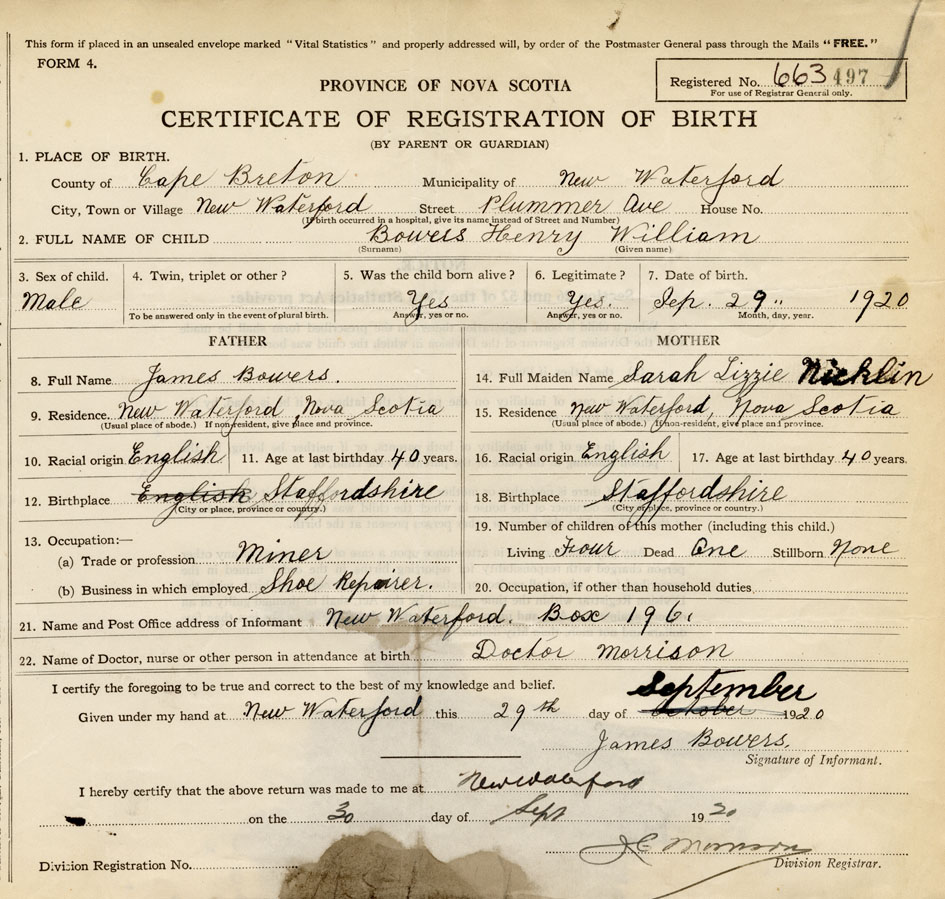 This form if placed in an unsealed envelope marked "Vital Statistics" and properly addressed will, by order of the Postmaster General pass through the Mails "FREE."
FORM 4.
Registered No. 663 497
For use of Registrar General only.
PROVINCE OF NOVA SCOTIA
CERTIFICATE OF REGISTRATION OF BIRTH
(BY PARENT OR GUARDIAN)
1. PLACE OF BIRTH.
County of Cape Breton Municipality of New Waterford
City, Town or Village New Waterford Street Plummer Ave House No.
(If birth occurred in a hospital, give its name instead of Street and Number)
2. FULL NAME OF CHILD Bowers Henry William
(Surname) (Given name)
3. Sex of child. 4. Twin, triplet or other? 5. Was the child born alive? 6. Legitimate? 7. Date of birth.
Male Yes Yes. Sep. 29" 1920
To be answered only in the event of plural birth. Answer, yes or no. Answer, yes or no. Month, day, year.
FATHER MOTHER
8. Full Name James Bowers. 14. Full Maiden Name Sarah Lizzie Nicklin
9. Residence. New Waterford Nova Scotia 15. Residence New Waterford, Nova Scotia
(Usual place of abode.) If non-resident, give place and province. (Usual place of abode.) If non-resident, give place and province.
10. Racial origin English 11. Age at last birthday 40 years. 16. Racial origin English 17. Age at last birthday 40 years.
12. Birthplace English Staffordshire 18. Birthplace Staffordshire
(City or place, province or country.) (City or place, province or country.)
19. Number of children of this mother (including this child.)
13. Occupation:—
(a) Trade or profession Miner Living Four Dead One Stillborn None
(b) Business in which employed Shoe Repairer. 20. Occupation, if other than household duties.
21. Name and Post Office address of Informant New Waterford. Box 196.
22. Name of Doctor, nurse or other person in attendance at birth Doctor Morrison
I certify the foregoing to be true and correct to the best of my knowledge and belief.
September
Given under my hand at New Waterford this 29th day of October 1920
James Bowers.
Signature of Informant.
I hereby certify that the above return was made to me at New Waterford
on the 30 day of Sept 1920
Division Registration No. Division Registrar.